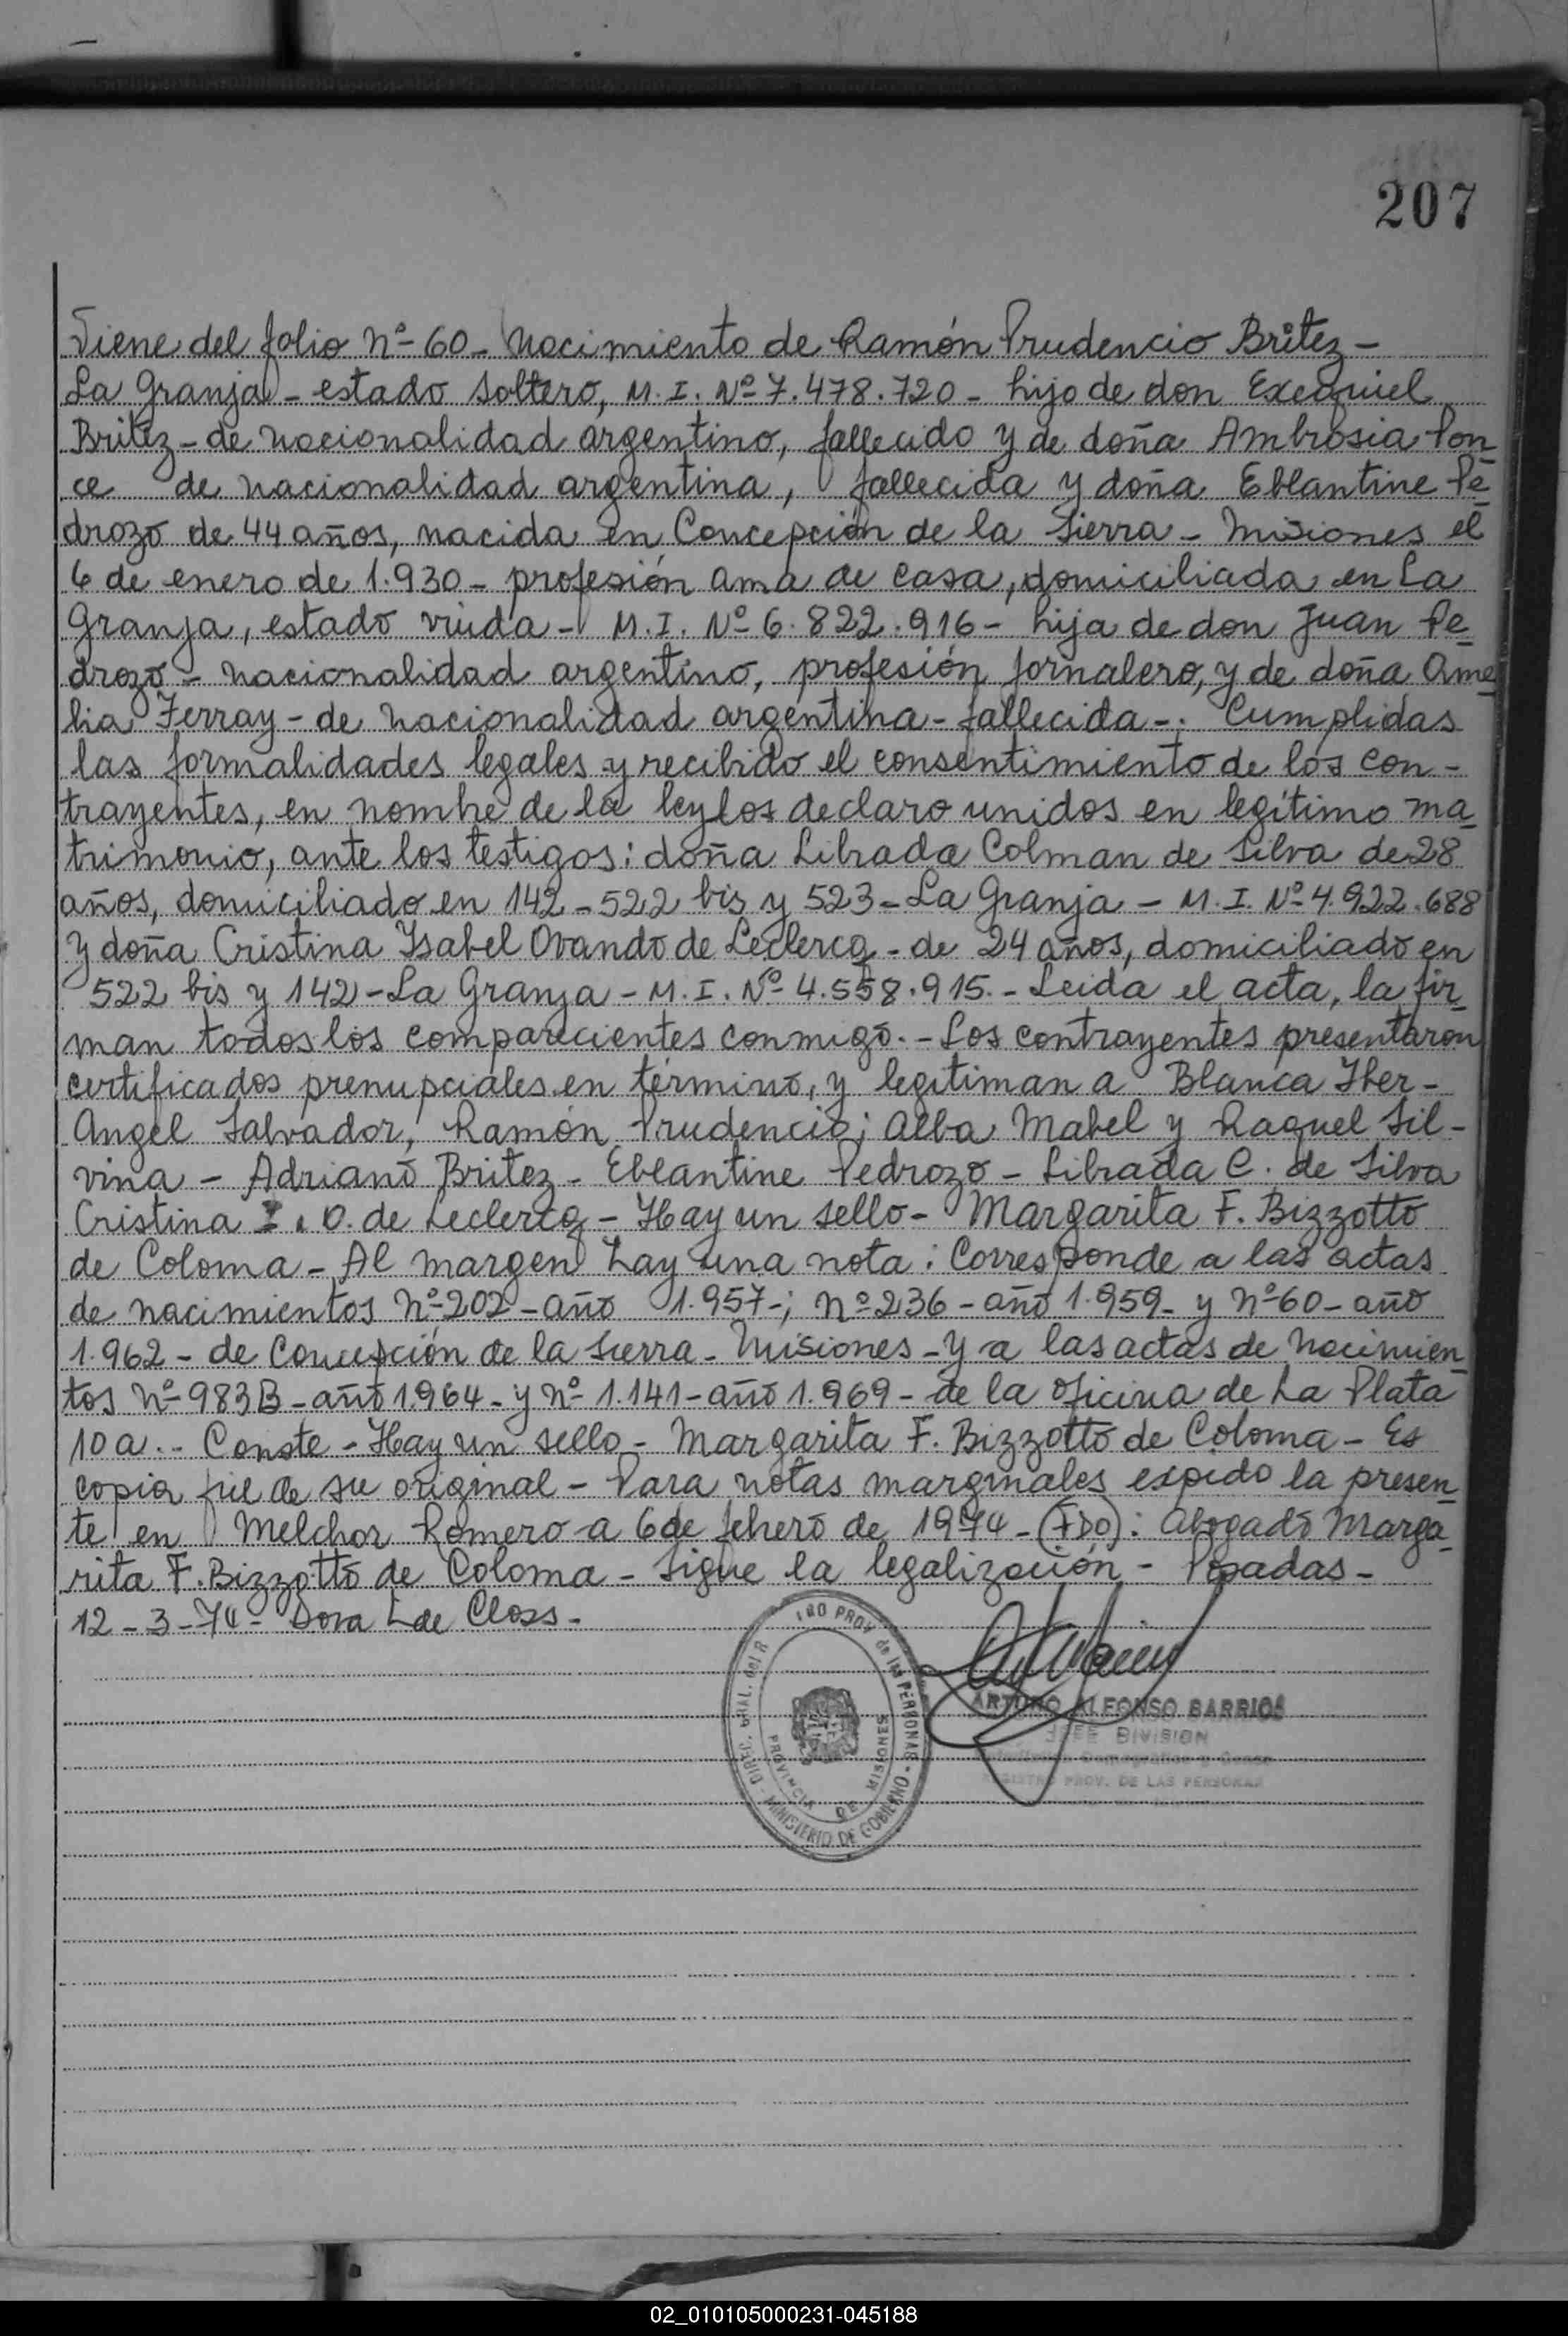 207
Viene del folio Nº 60 - Nacimiento de Ramón Prudencio Britez -
La Granja - estado soltero, M. I. Nº 7.478.720 - hijo de don Exequiel
Britez - de nacionalidad argentino, fallecido y de doña Ambrosia Pon
ce de nacionalidad argentina, fallecida y doña Eblantine Pe
drozo de 44 años, nacida en Concepción de la Sierra - Misiones el
6 de enero de 1.930 - profesión ama de casa, domiciliada en La
Granja, estado viuda - M. I. Nº 6.822.916 - hija de don Juan Pe
drozo - nacionalidad argentino, profesión jornalero, y de doña Ame
lia Ferray - de nacionalidad argentina - fallecida -. Cumplidas
las formalidades legales y recibido el consentimiento de los con -
trayentes, en nombre de la ley los declaro unidos en legítimo ma
trimonio, ante los testigos: doña Librada Colman de Silva de 28
años, domiciliado en 142 - 522 bis y 523 - La Granja - M. I. Nº 4.922.688
y doña Cristina Ysabel Ovando de Leclercq - de 24 años, domiciliado en
522 bis y 142 - La Granja - M. I. Nº 4.558.915. - Leida el acta, la fir
man todos los comparecientes conmigo. - Los contrayentes presentaron
certificados prenupciales en término, y legitiman a Blanca Yher -
Angel Salvador, Ramón Prudencio; Alba Mabel y Raquel Sil -
vina - Adriano Britez - Eblantine Pedrozo - Librada C. de Silva
Cristina I. O. de Leclercq - Hay un sello - Margarita F. Bizzotto
de Coloma - Al margen hay una nota: Corresponde a las actas
de nacimientos Nº 202 - año 1.957 -; Nº 236 - año 1.959 - y Nº 60 - año
1.962 - de Concepción de la Sierra - Misiones - y a las actas de Nacimien
tos Nº 983B - año 1.964 - y Nº 1.141 - año 1.969 - de la oficina de La Plata
10 a. - Conste - Hay un sello - Margarita F. Bizzotto de Coloma - Es
copia fiel de su original - Para notas marginales expido la presen
te en Melchor Romero a 6 de febrero de 1974 - (FDO): Abogado Marga
rita F. Bizzotto de Coloma - Sigue la legalización - Posadas -
12 - 3 - 74 - Dora L de Closs -
DIREC. GRAL. del R PROV de las PERSONAS - MINISTERIO DE GOBIERNO
PROVINCIA DE MISIONES
ARTURO ALFONSO BARRIOS
JEFE DIVISION
REGISTRO PROV. DE LAS PERSONAS
02_010105000231-045188